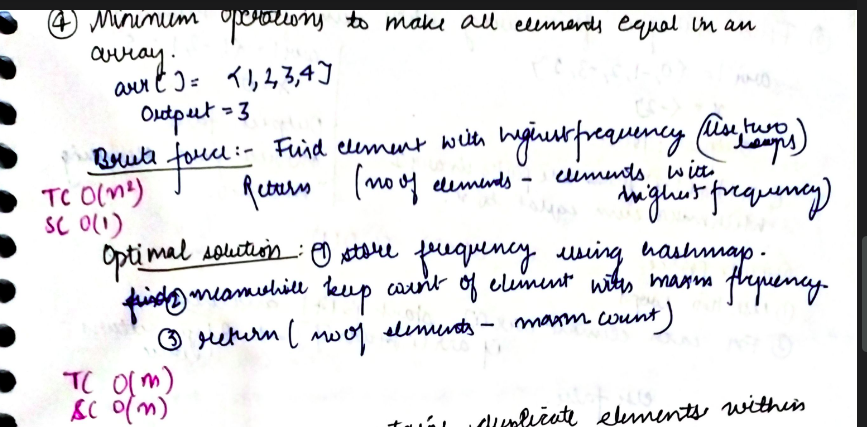 ④ Minimum operations to make all elements equal in an
array.
arr[] = {1,2,3,4}
Output = 3
Brute force :- Find element with highest frequency (Use two loops)
Return (no of elements - elements with highest frequency)
TC O(n²)
SC O(1)
Optimal solution : ① store frequency using hashmap.
② meanwhile keep count of element with maxm frequency
③ return (no of elements - maxm count)
TC O(n)
SC O(n)
duplicate elements within